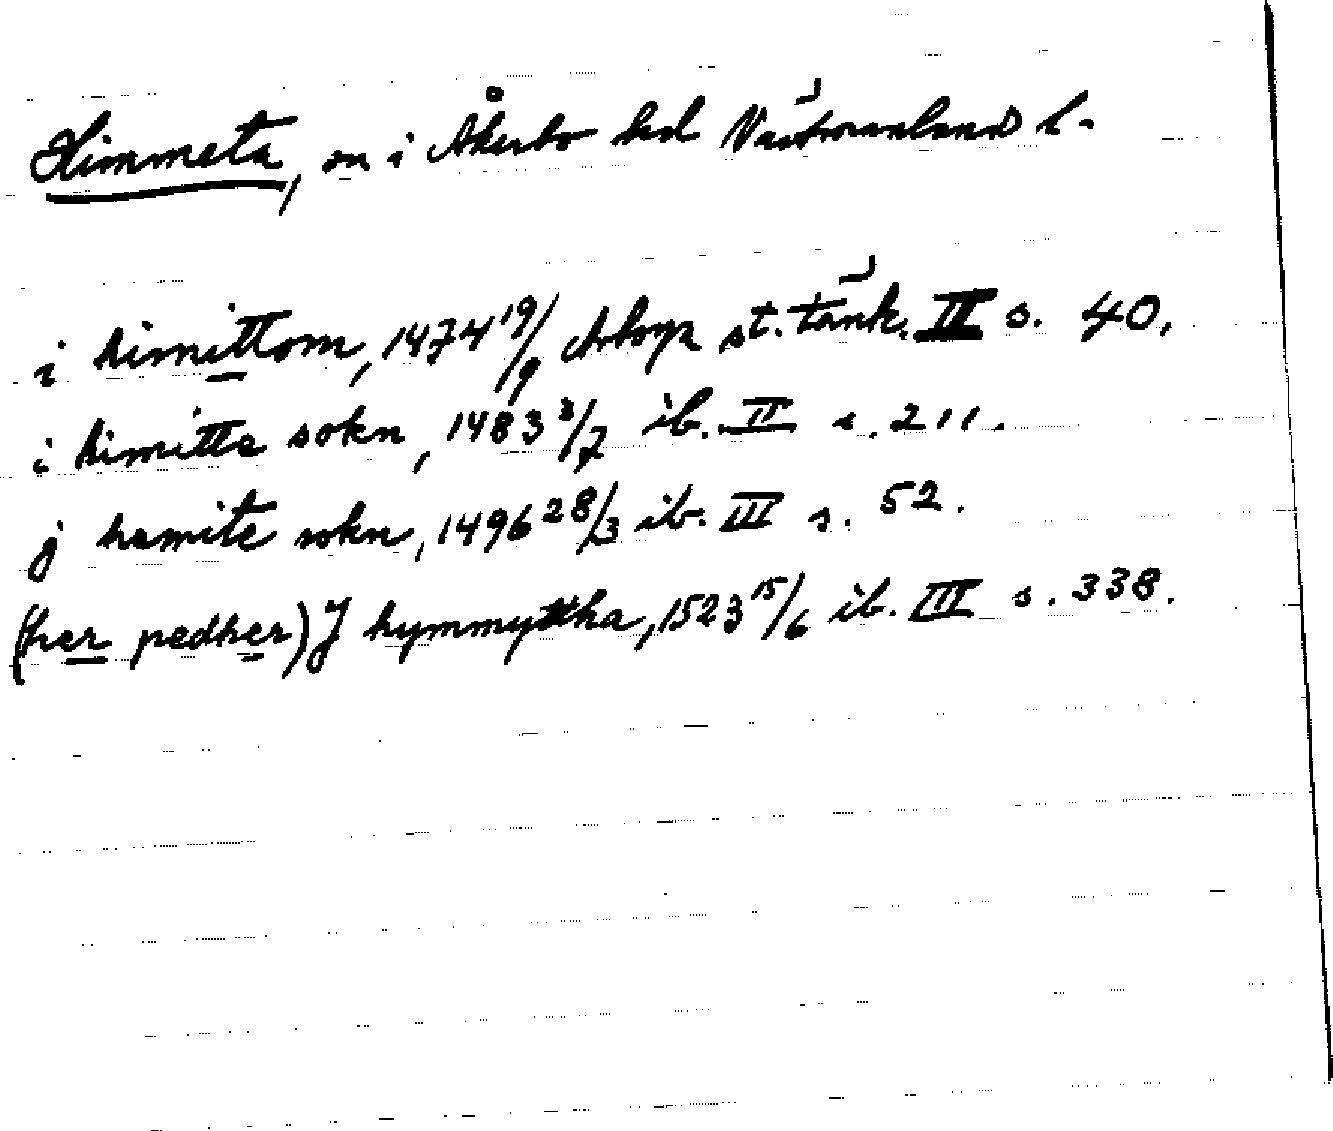 Himmeta, sn i Åkerbo hd Västmanland l.
i himittom, 1474 19/9 Arboga st. tänk. II s. 40,
i himitta sokn, 1483 3/7 ib. II s. 211.
j hamite sokn, 1496 28/3 ib. III s. 52.
(her pedher) J hymmyttha, 1523 15/6 ib. III s. 338.